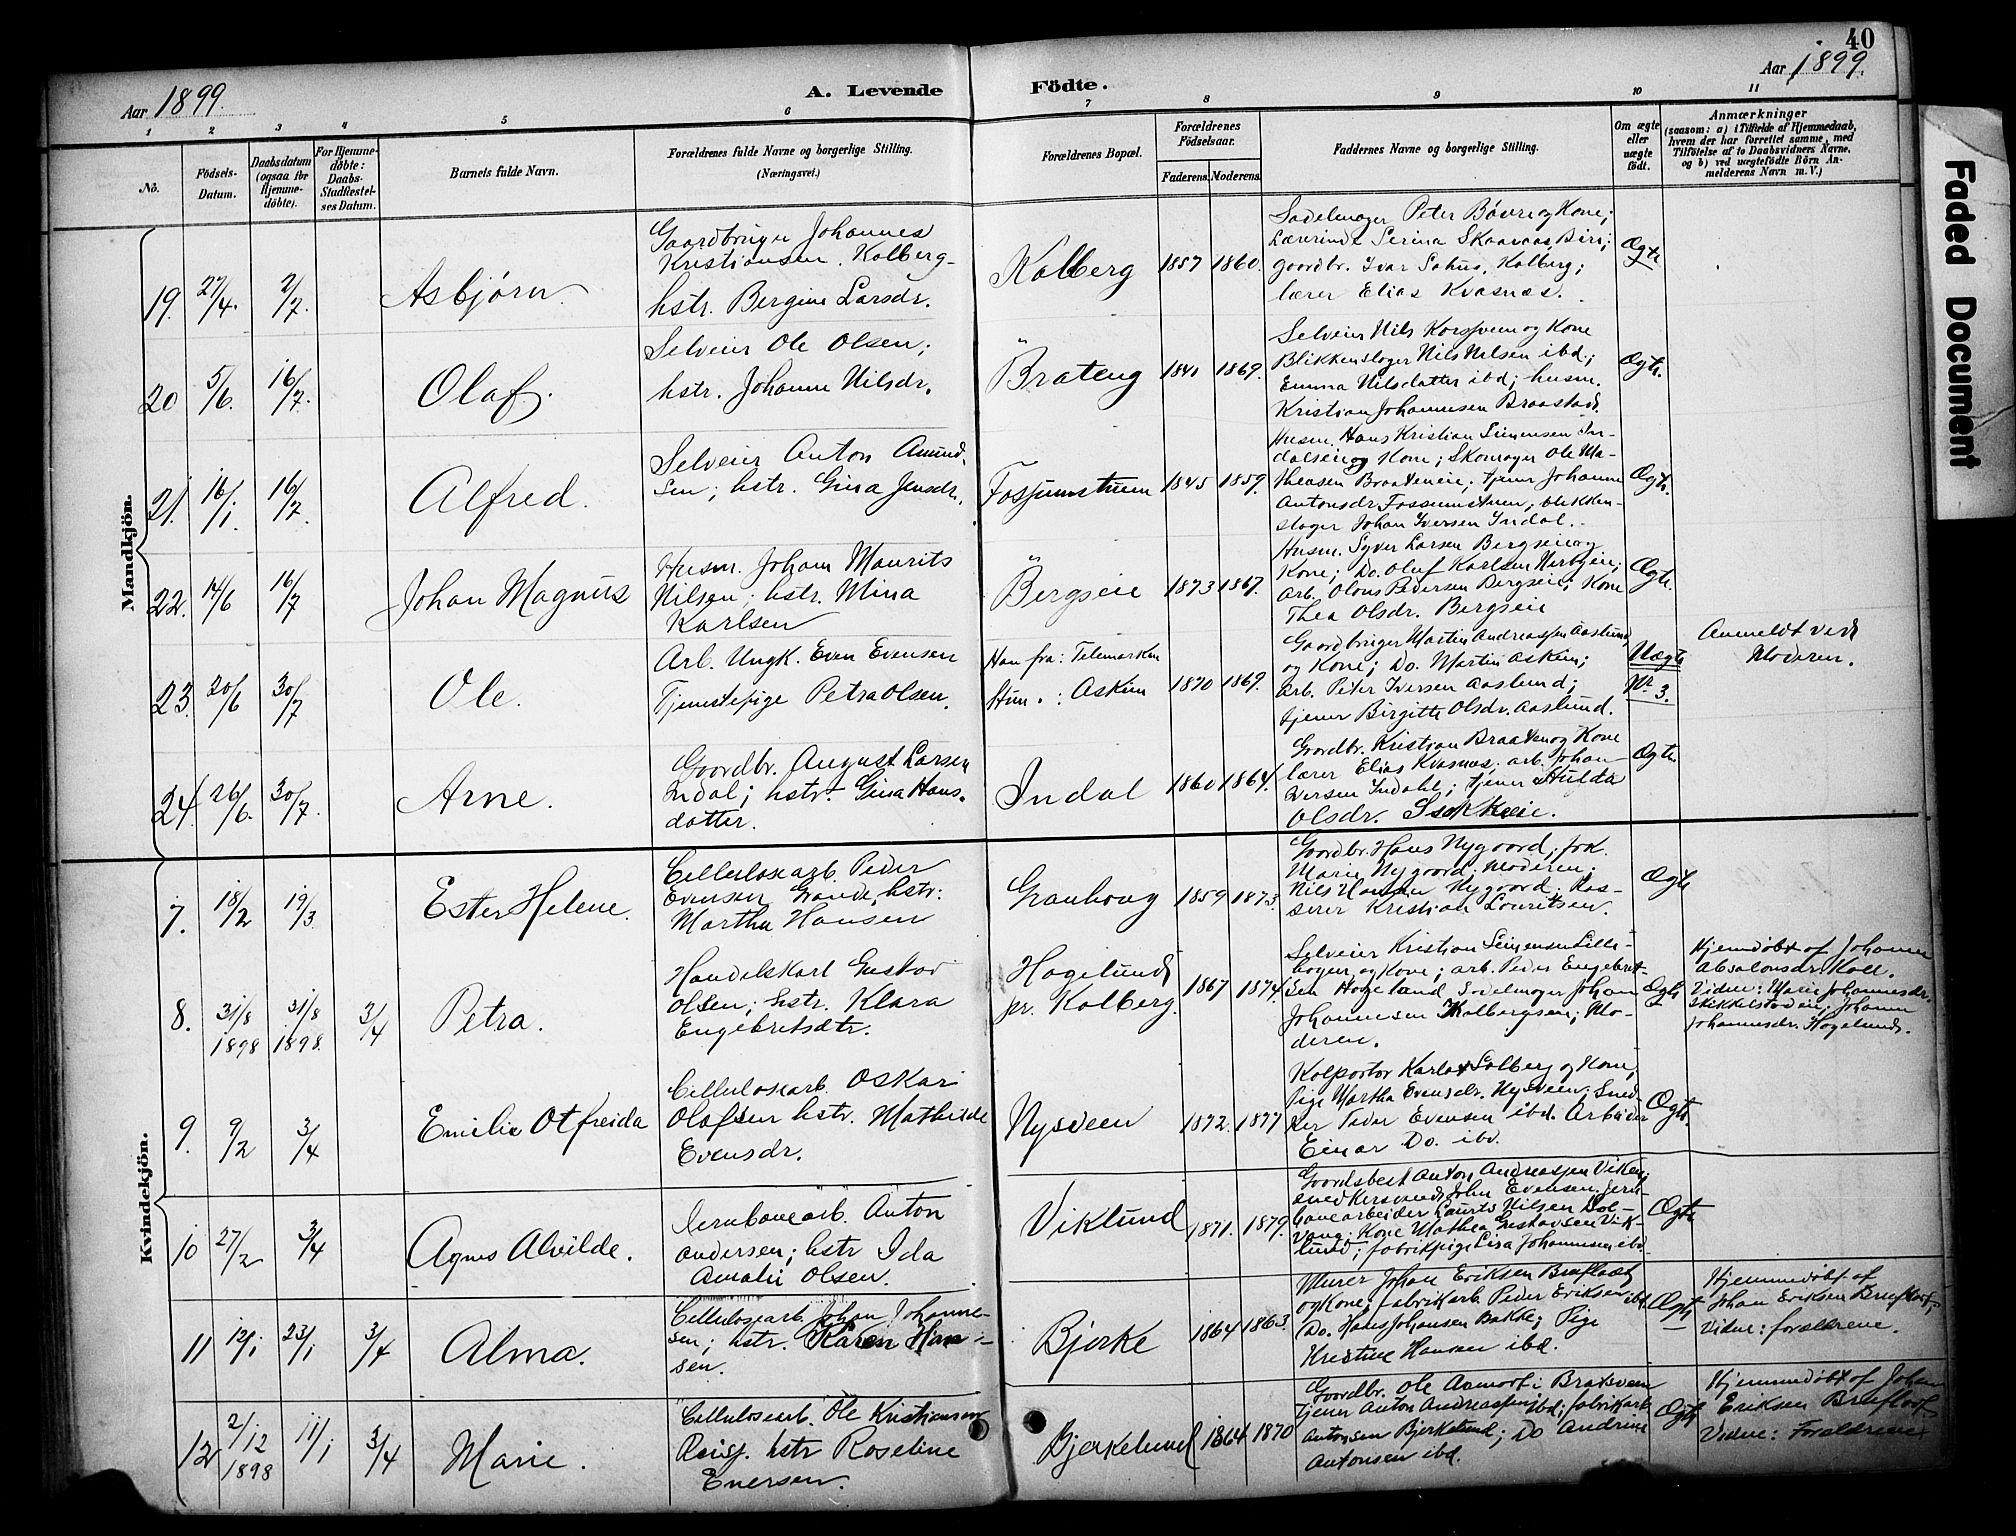 40
Aar 1899.
A. Levende Födte.
Aar 1899.
1 2 3 4 5 6 7 8 9 10 11
No.
Födsels-Datum.
Daabsdatum (ogsaa for Hjemmedöbte).
For Hjemmedöbte: Daabs-Stadfestelses Datum.
Barnets fulde Navn.
Forældrenes fulde Navne og borgerlige Stilling. (Næringsvei.)
Forældrenes Bopæl.
Forældrenes Födselsaar.
Faderens. Moderens.
Faddernes Navne og borgerlige Stilling.
Om ægte eller uægte födt.
Anmærkninger
(saasom: a) i Tilfælde af Hjemmedaab, hvem der har forrettet samme, med Tilföielse af to Daabsvidners Navne, og b) ved uægtefödte Börn Anmelderens Navn m. V.)
Faded Document
Mandkjön.
19. 27/4. 2/7. Asbjørn.
Gaardbruger Johannes
Kristiansen Kolberg
hstr. Bergine Larsdr.
Kolberg 1857 1860.
Sadelmager Peter Bøvre og Kone;
Lærerinde Serina Skaaraas, Biri;
gaardbr. Ivar Sohus, Kolberg;
lærer Elias Kvasnæs.
Ægte
20 5/6. 16/7. Olaf.
Selveier Ole Olsen;
hstr. Johanne Nilsdr.
Brateng 1841 1869.
Selveier Nils Korssveen og Kone
Blikkenslager Nils Nilsen ibd.;
Emma Nilsdatter ibd; husm.
Kristian Johannesen Braastad.
Ægte.
21. 16/1. 16/7. Alfred.
Selveier Anton Amund-
sen; hstr. Gina Jensdr.
Fossumstuen 1845 1859.
Husm. Hans Kristian Simensen In-
dalseie og Kone; Skomager Ole Ma-
theasen Braateneie; tjener Johanne
Antonsdr Fossumstuen; blikken-
slager Johan Iversen Indal.
Ægte.
22. 14/6 16/7 Johan Magnus
Husm. Johan Maurits
Nilsen hstr. Mina
Karlsen
Bergseie 1873 1867.
Husm. Syver Larsen Bergseie og
Kone; Do. Oluf Karlsen
Arb. Olous Pedersen Bergseie; Kone
Thea Olsdr. Bergseie
Ægte
23. 20/6 30/7 Ole.
Arb. Ungk. Even Evensen
Tjenestepige Petra Olsen.
Han fra: Telemarken
Hun " : Askim 1870 1869.
Gaardbruger Martin Andreassen Aaslund
og Kone; Do. Martin Askim;
Arb. Peter Iversen Aaslund;
tjener Birgitte Olsdr. Aaslund.
Uægte Nr. 3.
Anmeldt ved Moderen.
24. 26/6. 30/7. Arne.
Gaardbr. August Larsen
Indal; hstr. Gina Hans-
datter.
Indal 1860 1864.
Gaardbr. Kristian Braaten og Kone
lærer Elias Kvasnes; arb. Johan
Iversen Indahl; tjener Hulda
Olsdr.
Ægte
Kvindekjön.
7. 18/2 19/3. Ester Helene.
Cellulosearb. Peder
Evensen Grande, hstr:
Martha Hansen
Granhoug 1859 1873.
Gaardbr. Hans Nygaard; frk.
Marie Nygaard. Moderen;
Nils Hansen Nygaard; Kas-
serer Kristian Lauritsen.
Ægte
8. 31/8 1898 31/8 1898. 3/4 Petra.
Handelskarl Gustav
Olsen; hstr. Klara
Engebretsdtr.
Hagelund pr. Kolberg. 1867 1874
Selveier Kristian Simensen Lille-
hagen og Kone; arb. Peder Engebret-
sen Hageland Sadelmager Johan
Johannesen Kolbergsen; Mo-
deren.
Ægte
Hjemdøbt af Johanne
Absalonsdr. Koll.
Vidne: Marie Johannesdr.
Johanne
Johannesdr. Hagelund.
9. 9/2 3/4 Emilie Otfreida
Cellulosearb. Oskar
Olafsen hstr. Mathilde
Evensdr.
Nysveen 1872. 1877
Kolportør Karl Solberg og Kone,
Pige Martha Evensdr. Nysveen; Sned-
ker Peder Evensen ibd. Arbeider
Einar Do. ibd.
Ægte.
10 27/2 3/4 Agnes Alvilde.
Jernbanearb. Anton
Andersen; hstr Ida
Amalie Olsen.
Viklund 1871. 1879.
Gaardsbest Anton Andreassen Viken;
snedkersvend John Evensen; Jern-
banearbeider Laurits Nilsen Dal-
vang; Kone Mathea Gustavsen Vik-
lund; fabrikpige Lisa Johannesen ibd.
Ægte
11 12/1 23/1 3/4 Alma.
Cellulosearb. Johan Johanne-
sen; hstr. Karen Han-
sen.
Bjerke 1864 1863.
Murer Johan Eriksen Brufladt
og Kone; fabrikarb. Peder Eriksen ibd.
Do. Hans Johansen Bakke; Pige
Kristine Hansen ibd.
Ægte
Hjemmedøbt af
Johan Eriksen Brufladt,
Vidne: forældrene.
12 2/12 1898 11/1 3/4 Marie.
Cellulosearb. Ole Kristiansen
hstr Roseline
Enersen.
Bjerkelund 1864 1870
Gaardbr. Ole Aamodt i Bratsveen
tjener Anton Andreassen ibd; fabrikarb
Antonsen Bjerkelund; Do Andrine
Antonsen ibd.
Ægte
Hjemmedøbt af Johan
Eriksen Brufladt
Vidne: Forældrene